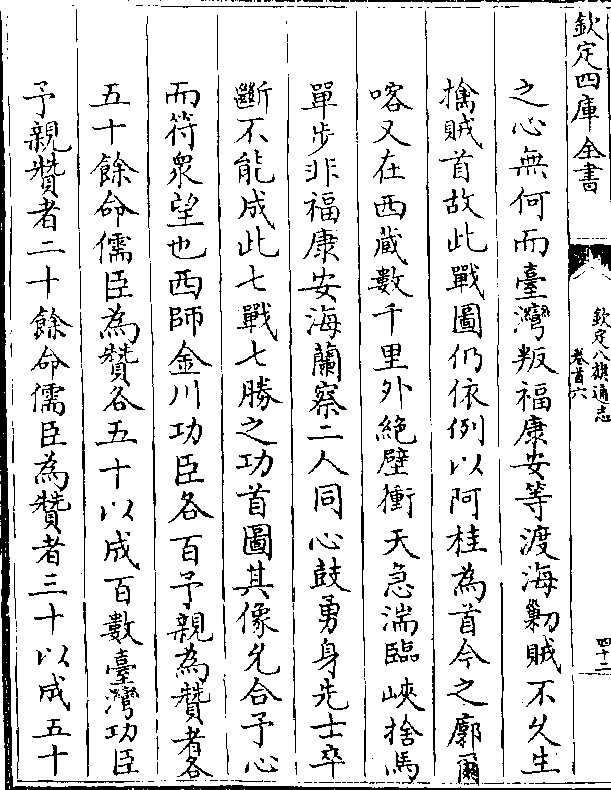 欽定四庫全書
欽定八旗通志
卷首六
四十二
之心無何而臺灣叛福康安等渡海勦賊不久生
擒賊首故此戰圖仍依例以阿桂為首今之廓爾
喀又在西藏數千里外絶壁衝天急湍臨峽捨馬
單步非福康安海蘭察二人同心鼓勇身先士卒
斷不能成此七戰七勝之功首圖其像允合予心
而符衆望也西師金川功臣各百予親為贊者各
五十餘命儒臣為贊各五十以成百數臺灣功臣
予親贊者二十餘命儒臣為贊者三十以成五十